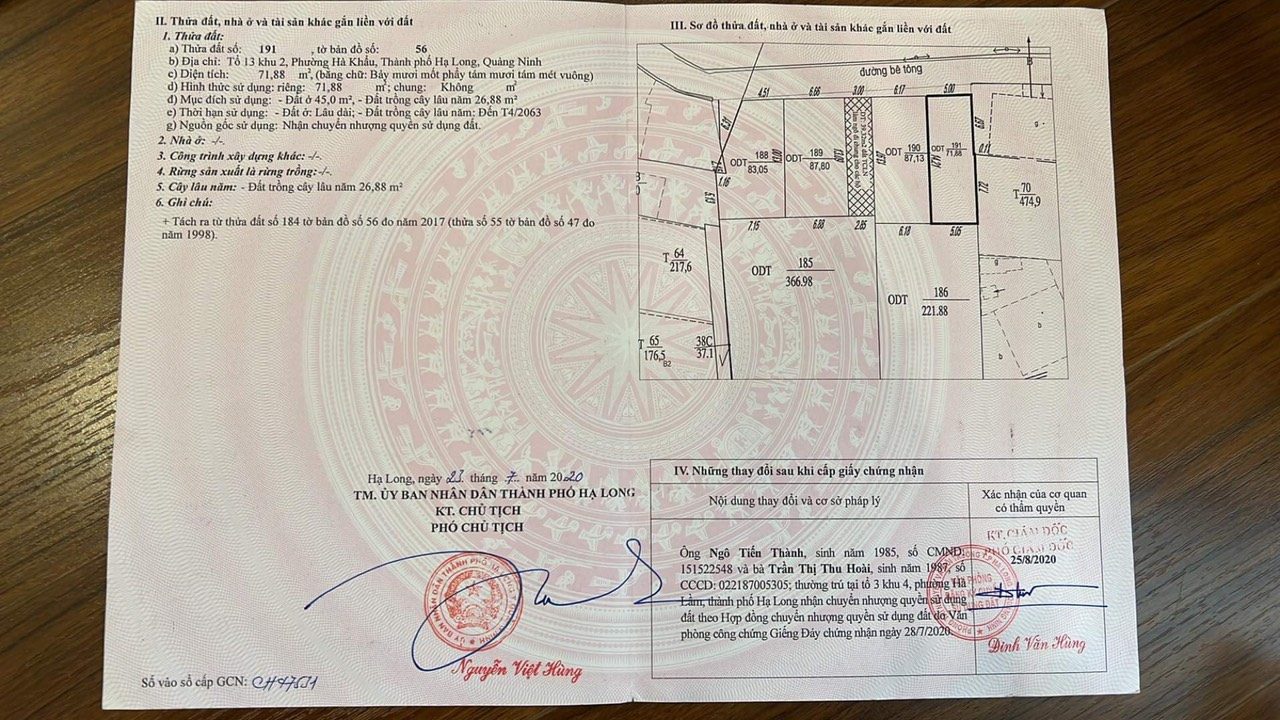 II. Thửa đất, nhà ở và tài sản khác gắn liền với đất
1. Thửa đất:
a) Thửa đất số: 191 , tờ bản đồ số: 56
b) Địa chỉ: Tổ 13 khu 2, Phường Hà Khẩu, Thành phố Hạ Long, Quảng Ninh
c) Diện tích: 71,88 m², (bằng chữ: Bảy mươi mốt phẩy tám mươi tám mét vuông)
d) Hình thức sử dụng: riêng: 71,88 m²; chung: Không m²
đ) Mục đích sử dụng: - Đất ở 45,0 m², - Đất trồng cây lâu năm 26,88 m²
e) Thời hạn sử dụng: - Đất ở: Lâu dài; - Đất trồng cây lâu năm: Đến T4/2063
g) Nguồn gốc sử dụng: Nhận chuyển nhượng quyền sử dụng đất.
2. Nhà ở: -/-.
3. Công trình xây dựng khác: -/-.
4. Rừng sản xuất là rừng trồng: -/-.
5. Cây lâu năm: - Đất trồng cây lâu năm 26,88 m²
6. Ghi chú:
+ Tách ra từ thửa đất số 184 tờ bản đồ số 56 đo năm 2017 (thửa số 55 tờ bản đồ số 47 đo
năm 1998).
Hạ Long, ngày 23 tháng 7 năm 2020
TM. ỦY BAN NHÂN DÂN THÀNH PHỐ HẠ LONG
KT. CHỦ TỊCH
PHÓ CHỦ TỊCH
Nguyễn Việt Hùng
Số vào sổ cấp GCN:
III. Sơ đồ thửa đất, nhà ở và tài sản khác gắn liền với đất
B
đường bê tông
4.51 6.66 3.00 6.17 5.00
6.31 6.67
ODT 188 83,05
13.00
ODT 189 87,80
ODT 190 87,13
ODT 191 71,88
14.24
0.17
1.16
13.5
7.72
T 70 474,9
7.15 6.88 2.85 6.18 5.05
T 64 217,6
ODT 185 366.98
ODT 186 221.88
T 65 176,5
B2
38C 37.1
g
b
b
IV. Những thay đổi sau khi cấp giấy chứng nhận
Nội dung thay đổi và cơ sở pháp lý
Xác nhận của cơ quan
có thẩm quyền
Ông Ngô Tiến Thành, sinh năm 1985, số CMND:
151522548 và bà Trần Thị Thu Hoài, sinh năm 1987, số
CCCD: 022187005305; thường trú tại tổ 3 khu 4, phường Hà
Lầm, thành phố Hạ Long nhận chuyển nhượng quyền sử dụng
đất theo Hợp đồng chuyển nhượng quyền sử dụng đất do Văn
phòng công chứng Giếng Đáy chứng nhận ngày 28/7/2020
KT. GIÁM ĐỐC
PHÓ GIÁM ĐỐC
25/8/2020
Đinh Văn Hùng